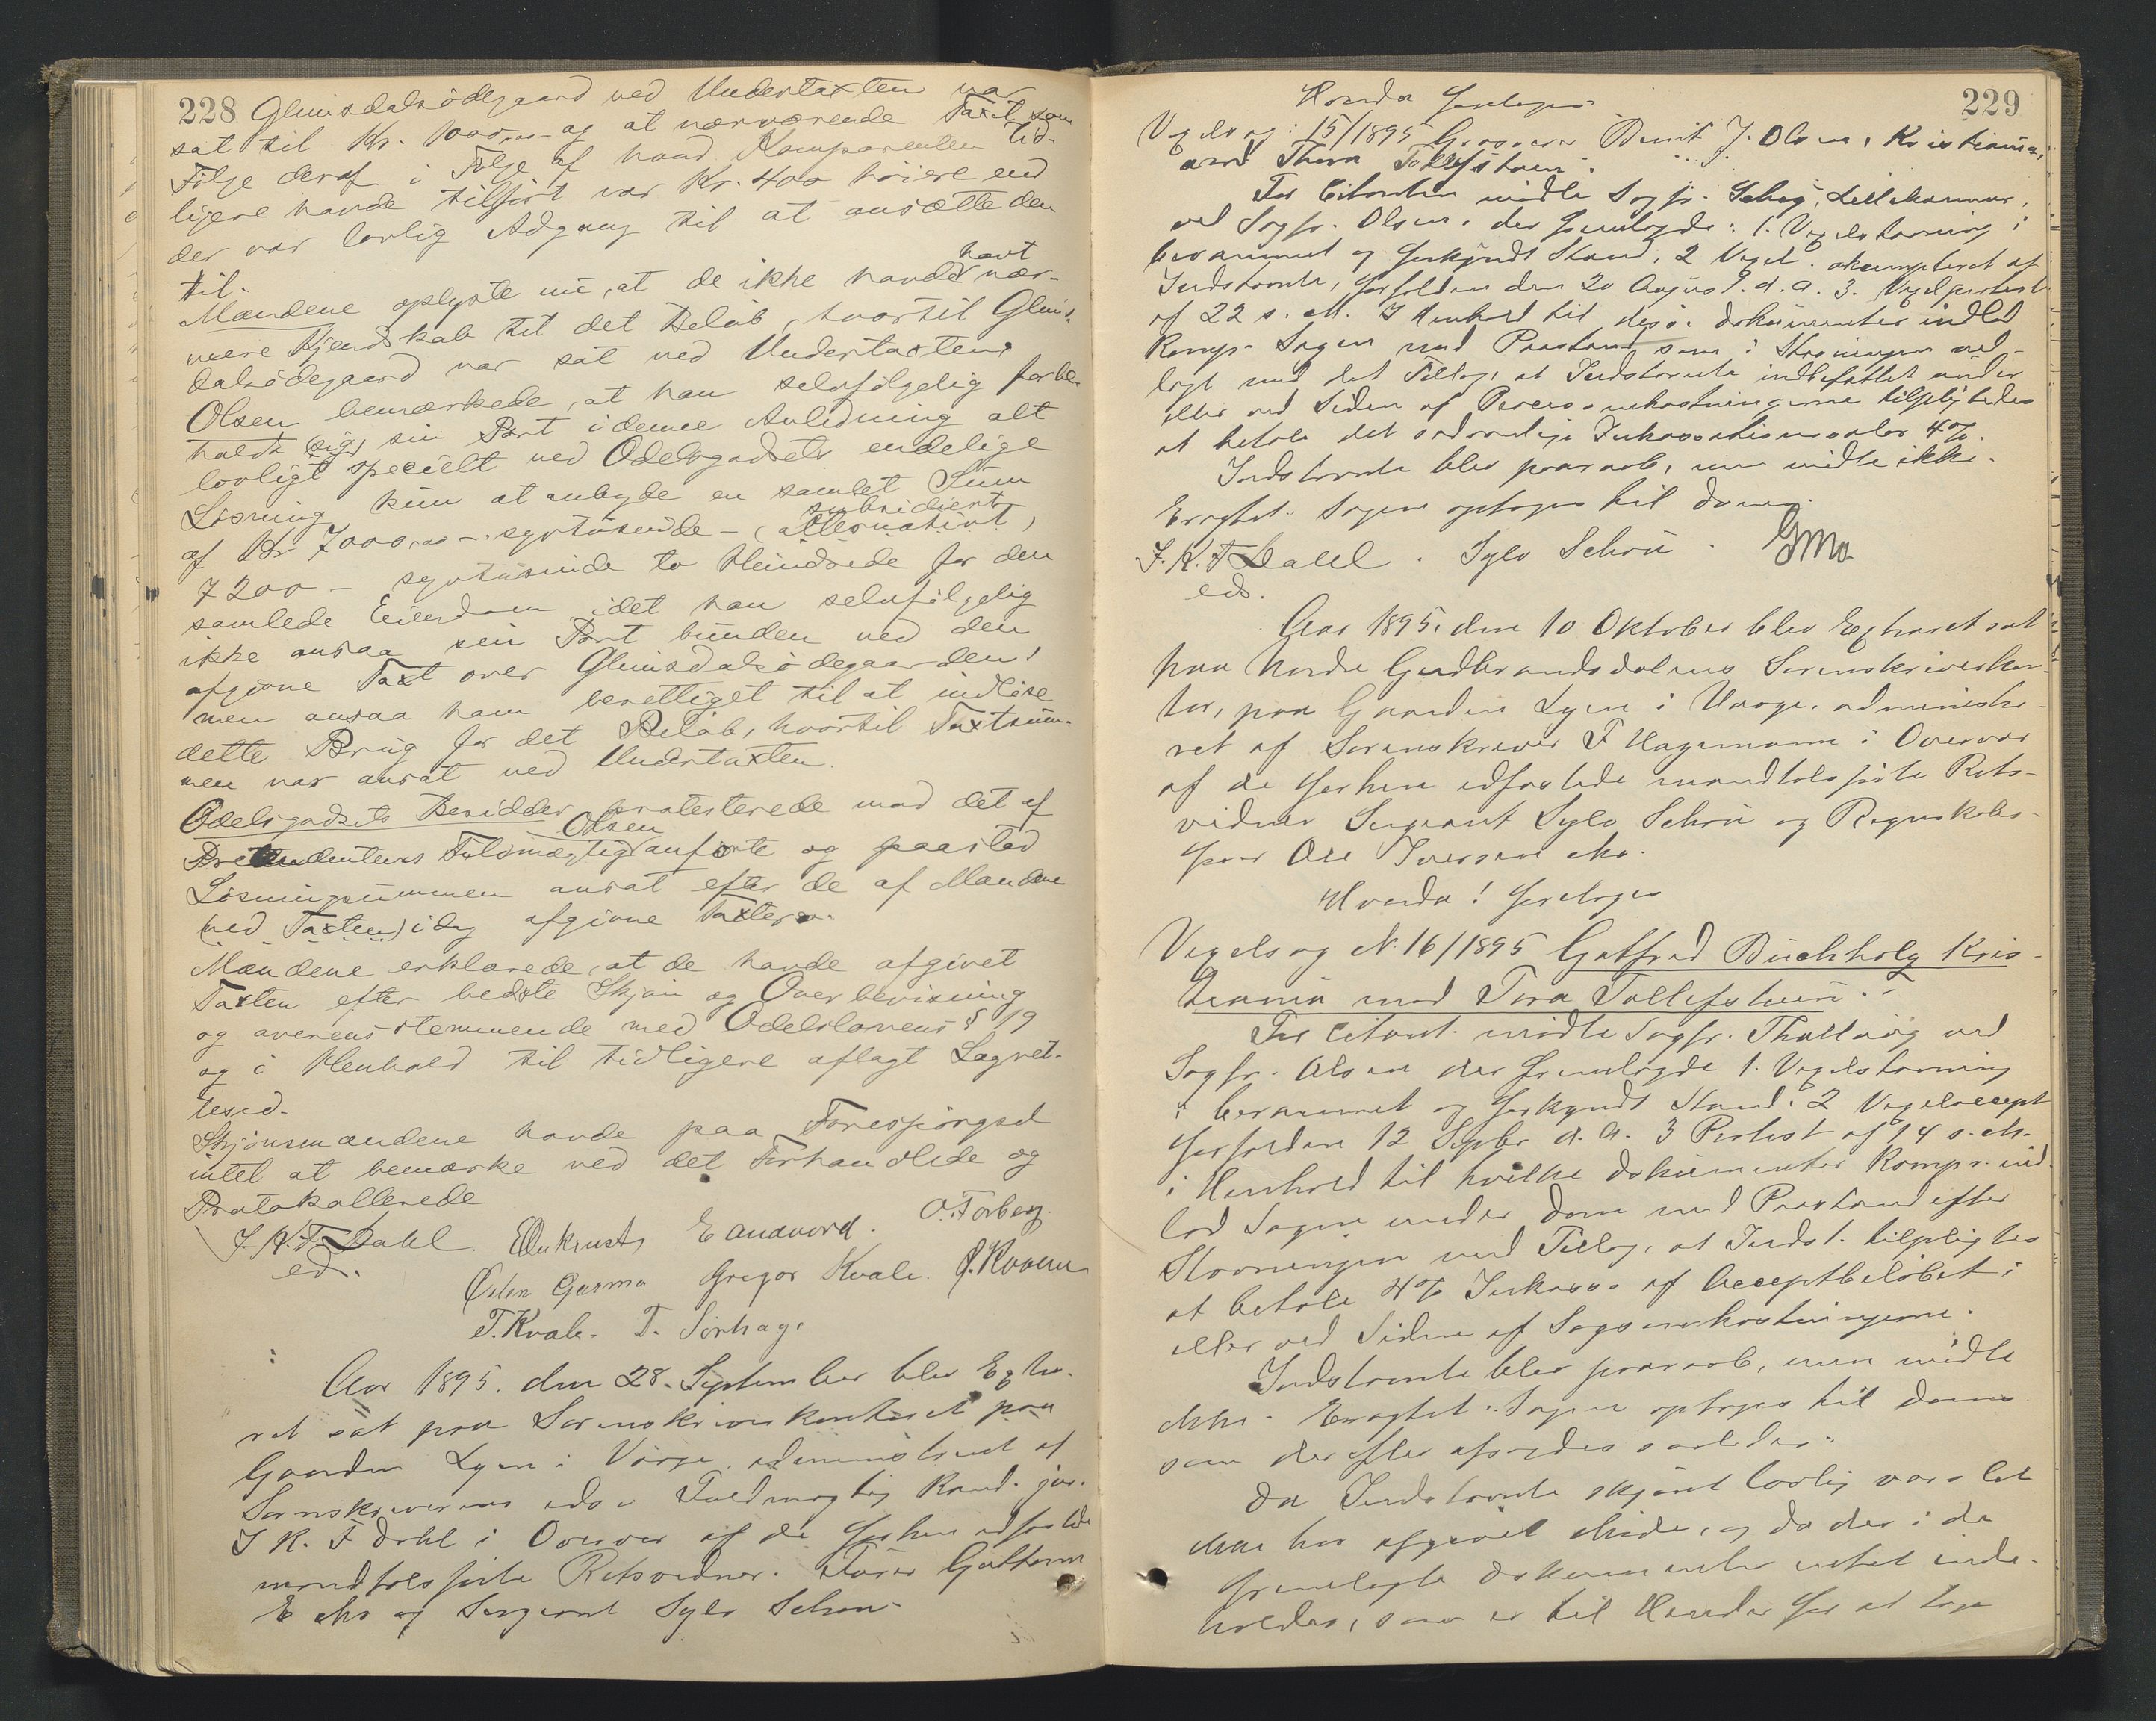 228 Glimsdalsödegaard ved Undertaxten var
sat til Kr. 1000,00 og at nærværende Taxt som
Følge deraf i Følge af hvad Komparenten tid-
ligere havde tilført var Kr. 400 höiere end
der var lovlig Adgang til at ansætte den
til.
Mændene oplyste nu, at de ikke havde havt nær-
mere Kjendskab til det Beløb, hvortil Glims-
dalsödegaard var sat ved Undertaxten.
Olsen bemærkede, at han selvfølgelig forbe-
holdt (sig) sin Part i denne Anledning alt
lovligt specielt ved Odelsgodsets endelige
Løsning kun at anbyde en samlet Sum
af Kr 7000,00 - syvtusinde - (alternativt) subsidiert
7200 - syvtusinde to Hundrede for den
samlede Eiendom idet han selvfølgelig
ikke ansaa sin Part bunden ved den
afgivne Taxt over Glimsdalsödegaarden!
men ansaa ham berettiget til at indløse
dette Brug for det Beløb, hvortil Taxtsum-
men var ansat ved Undertaxten.
Odelsgodsets Besidder protesterede mod det af
Prætendentens Fuldmægtig Olsen anførte og paastod
Løsningssummen ansat efter de af Mændene
(ved Taxten) idag afgivne Taxter.
Mændene erklærede, at de havde afgivet
Taxten efter bedste Skjøn og Overbevisning
og overensstemmende med Odelslovens § 19
og i Henhold til tidligere aflagt Lagret-
tesed.
Skjønsmændene havde paa Forespørgsel
intet at bemærke ved det Forhandlede og
Protokollerede
J. K. F. Dahl. E Aukrust E Andvord. O. Forberg.
ed. Østen Gusmo Gregor Kvale.
T. Kvale. T. Sørhage
Aar 1895. den 28. September blev Extra-
ret sat paa Sorenskriverkontoret paa
Gaarden Lyen i Vaage, administreret af
Sorenskriverens eds. Fuldmægtig Kand. jur.
J K. F Dahl i Overvær af de forhen edfæstede
mandtalsførte Retsvidner. Fører Guttorm
E og Sergeant Sylv Schou
229
Hvorda foretoges
Vexelsag: 15/1895 Grosserer Bernt J. Olsen, Kristiania,
mod Thora Tollefstuen.
For Citanten mødte Sagfr. Lillehammer,
ved Sagfr. Olsen, der fremlagde: 1. Vexelstævning i
berammet og forkyndt Stand, 2 Vexel. akcepteret af
Indstævnte, forfalden den 20 August d. a. 3. Vexelprotest
af 22 s. M. I Henhold til disse Dokumenter indlod
Komp. Sagen med Paastand som i Stævningen ned-
lagt med det Tillæg, at Indstævnte indbefattet under
eller ved Siden af Procesomkostningerne tilpligtedes
at betale det sedvanlige Inkassationssalær 4%.
Indstævnte blev paaraabt, men mødte ikke.
Eragtet: Sagen optages til Doms.
J. K. F Dahl. Sylv Schou. GMo
eds.
Aar 1895. den 10 Oktober blev Extraret sat
paa Nordre Gudbrandsdalens Sorenskriverkon-
tor, paa Gaarden Lyen i Vaage, administre-
ret af Sorenskriver F Hagemann i Overvær
af de forhen edfæstede mandtalsførte Rets-
vidner Sergeant Sylv Schou og Regnskabs-
fører Ole Iversen Mo.
Hvorda! foretoges
Vexelsag N. 16/1895 Gotfred Buchholz Kris-
tiania mod Tora Tollefstuen.
For Citant. mødte Sagfr. Thallaug ved
Sagfr. Olsen der fremlagde 1. Vexelstævning
i berammet og forkyndt Stand. 2 Vexelaccept
forfalden 12 Septbr d. A. 3 Protest af 14 s. M.
i Henhold til hvilke Dokumenter Komp. ind-
lod Sagen under Dom med Paastand efter
Stævningen med Tillæg, at Indst. tilpligtes
at betale 4% Inkasso af Acceptbeløbet i
eller ved Siden af Sagsomkostningerne.
Indstævnte blev paaraabt, men mødte
ikke. Eragtet: Sagen optages til Doms
som derefter afsagdes saaledes:
Da Indstævnte skjønt lovlig varslet
ikke har afgivet Møde, og da der i de
fremlagte Dokumenter intet inde-
holdes, som er til Hinder for at tage